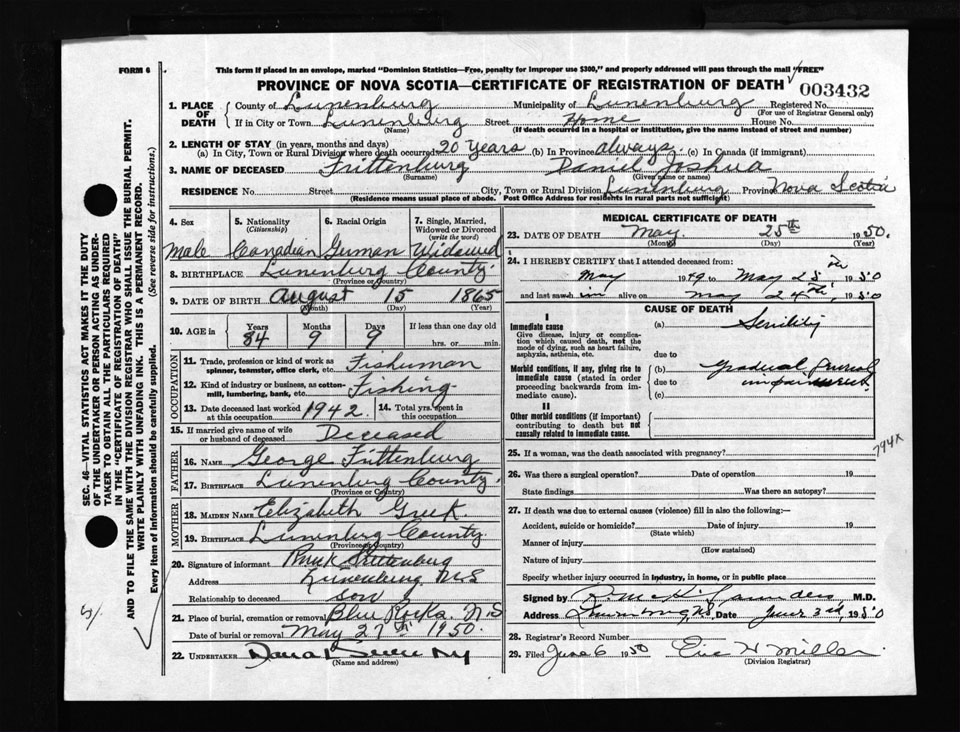 FORM 6
This form if placed in an envelope, marked "Dominion Statistics—Free, penalty for improper use $300," and properly addressed will pass through the mail "FREE"
PROVINCE OF NOVA SCOTIA—CERTIFICATE OF REGISTRATION OF DEATH
003432
1. PLACE OF DEATH
County of Lunenburg Municipality of Lunenburg Registered No.
(For use of Registrar General only)
If in City or Town Lunenburg Street Home House No.
(Name) (If death occurred in a hospital or institution, give the name instead of street and number)
2. LENGTH OF STAY (in years, months and days)
(a) In City, Town or Rural Division where death occurred 20 years (b) In Province always (c) In Canada (if immigrant)
3. NAME OF DECEASED Daniel Joshua
(Surname) (Given name or names)
RESIDENCE No. Street City, Town or Rural Division Lunenburg Province Nova Scotia
(Residence means usual place of abode. Post Office Address for residents in rural parts not sufficient)
4. Sex 5. Nationality 6. Racial Origin 7. Single, Married, Widowed or Divorced
(Citizenship) (write the word)
Male Canadian German Widowed
8. BIRTHPLACE Lunenburg County
(Province or Country)
9. DATE OF BIRTH August 15 1865
(Month) (Day) (Year)
10. AGE in Years Months Days If less than one day old
84 9 9 hrs. or min.
OCCUPATION
11. Trade, profession or kind of work as Fisherman
spinner, teamster, office clerk, etc.
12. Kind of industry or business, as cotton-mill, lumbering, bank, etc. Fishing
13. Date deceased last worked at this occupation 1942 14. Total yrs. spent in this occupation
15. If married give name of wife or husband of deceased Deceased
FATHER
16. NAME George
17. BIRTHPLACE Lunenburg County
(Province or Country)
MOTHER
18. MAIDEN NAME Elizabeth
19. BIRTHPLACE Lunenburg County
(Province or Country)
20. Signature of informant
Address Lunenburg N.S
Relationship to deceased son
21. Place of burial, cremation or removal Blue Rocks N.S
Date of burial or removal May 27th 1950
22. UNDERTAKER
(Name and address)
MEDICAL CERTIFICATE OF DEATH
23. DATE OF DEATH May 25th 1950.
(Month) (Day) (Year)
24. I HEREBY CERTIFY that I attended deceased from:
May 1949 to May 25th 1950
and last saw him alive on May 24th, 1950
CAUSE OF DEATH
I
Immediate cause (a) Senility
Give disease, injury or complication which caused death, not the mode of dying, such as heart failure, asphyxia, asthenia, etc.
due to
Morbid conditions, if any, giving rise to immediate cause (stated in order proceeding backwards from immediate cause).
(b) Gradual
due to
(c)
II
Other morbid conditions (if important) contributing to death but not causally related to immediate cause.
794X
25. If a woman, was the death associated with pregnancy?
26. Was there a surgical operation? Date of operation 19
State findings Was there an autopsy?
27. If death was due to external causes (violence) fill in also the following:—
Accident, suicide or homicide? Date of injury 19
(State which)
Manner of injury
(How sustained)
Nature of injury
Specify whether injury occurred in industry, in home, or in public place
Signed by M.D.
Address Date June 3rd, 1950
28. Registrar's Record Number
29. Filed June 6 1950 Eric H Miller
(Division Registrar)
SEC. 46—VITAL STATISTICS ACT MAKES IT THE DUTY
OF THE UNDERTAKER OR PERSON ACTING AS UNDER-
TAKER TO OBTAIN ALL THE PARTICULARS REQUIRED
IN THE "CERTIFICATE OF REGISTRATION OF DEATH"
AND TO FILE THE SAME WITH THE DIVISION REGISTRAR WHO SHALL ISSUE THE BURIAL PERMIT.
WRITE PLAINLY WITH UNFADING INK. THIS IS A PERMANENT RECORD.
Every item of information should be carefully supplied. (See reverse side for instructions.)